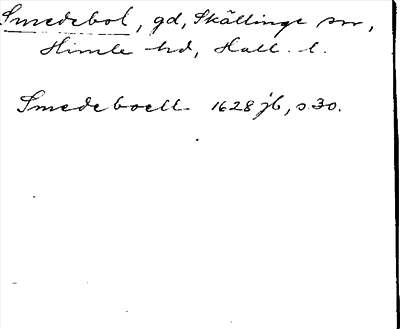 Smedebol, gd, Skällinge sn,
Himle hd, Hall. l.
Smedeboell 1628 jb, s 30.